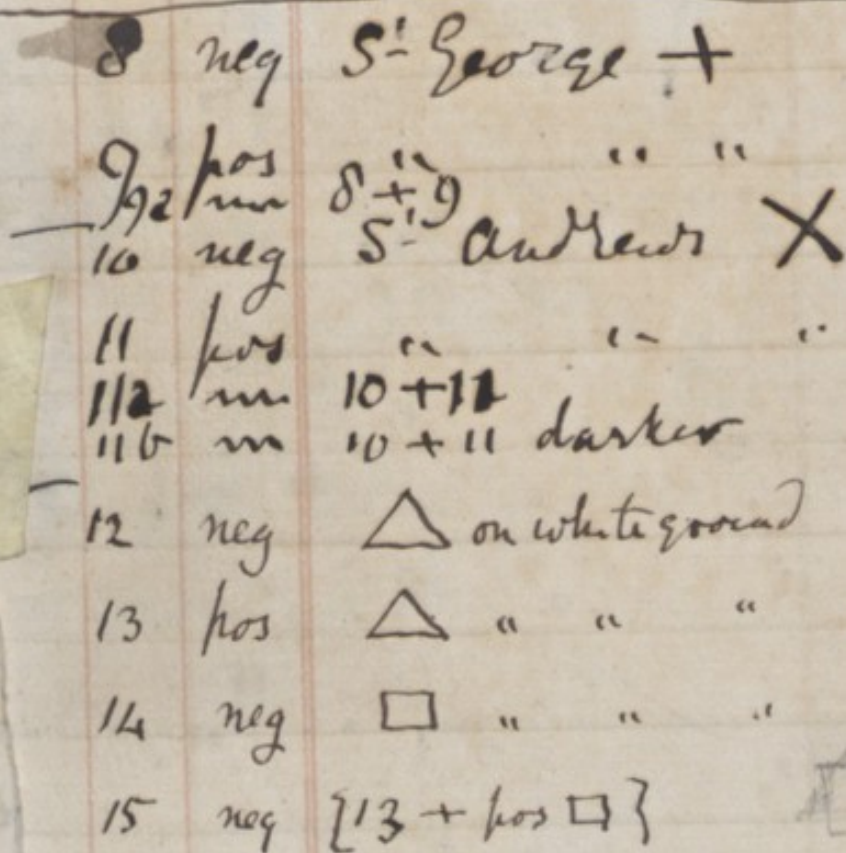 8 neg St George +
9 pos " " "
92 8 + 9
10 neg St Andrews X
11 pos " " "
11a 10 + 11
11b 10 + 11 darker
12 neg △ on white ground
13 pos △ " " "
14 neg □ " " "
15 neg {13 + pos □}